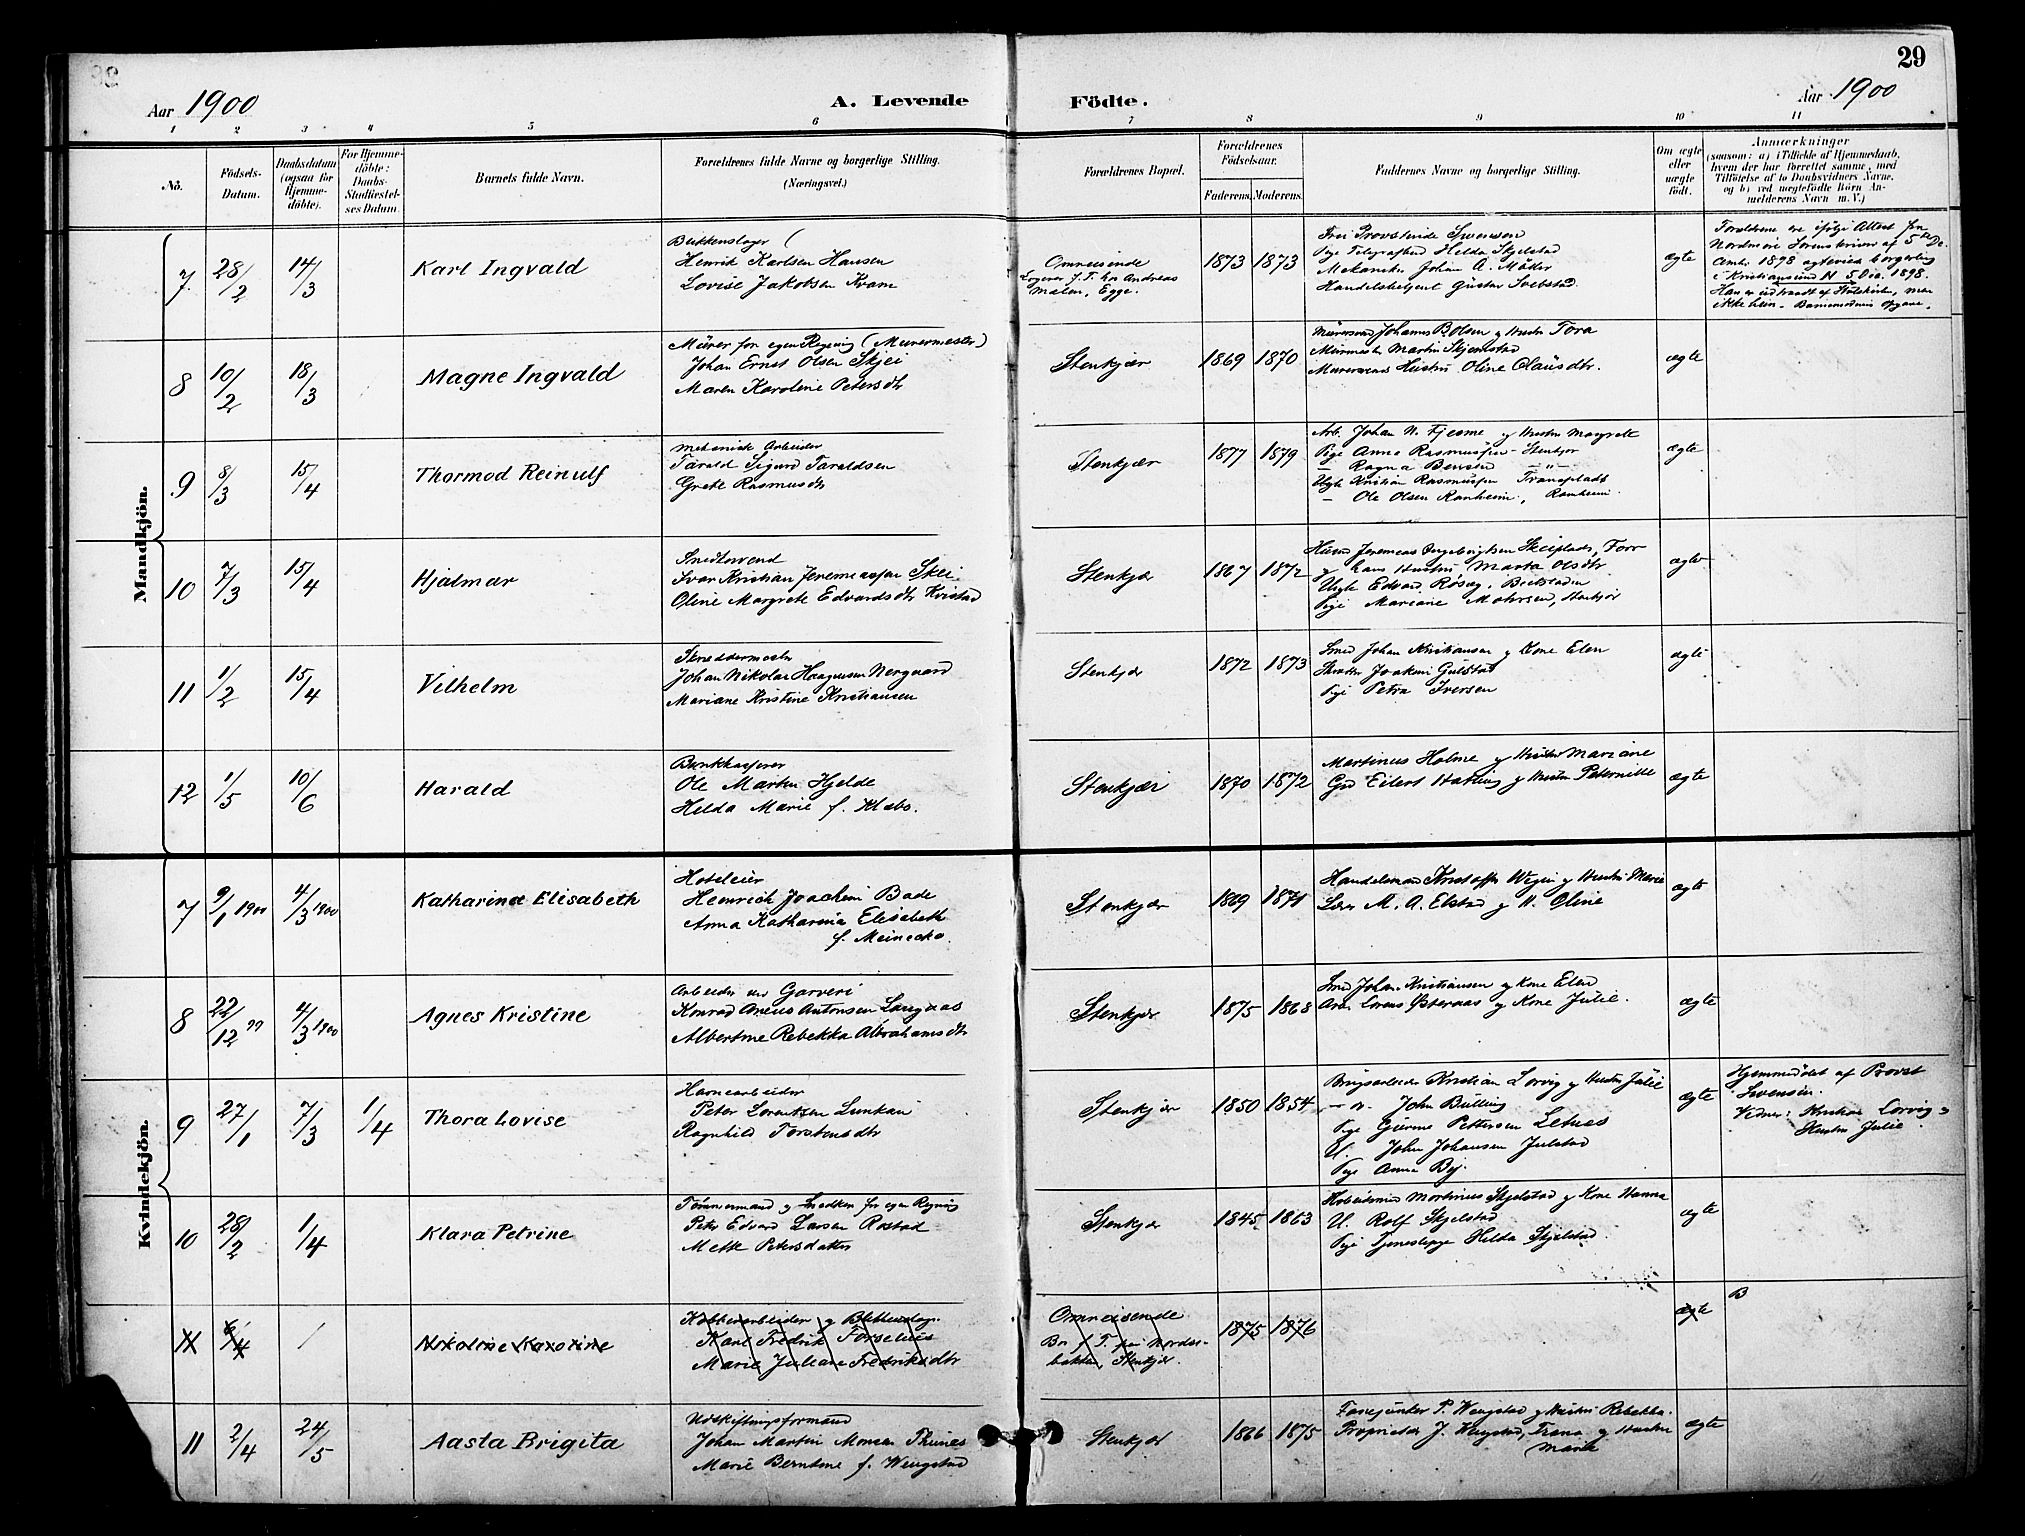 29
Aar 1900
A. Levende
Födte.
Aar 1900
1 2 3 4 5 6 7 8 9 10 11
No.
Födsels-
Datum.
Daabsdatum
(ogsaa for
Hjemme-
döbte).
For Hjemme-
döbte:
Daabs-
Stadfæstel-
ses Datum.
Barnets fulde Navn.
Forældrenes fulde Navne og borgerlige Stilling.
(Næringsvei.)
Forældrenes Bopæl.
Forældrenes
Födselsaar.
Faderens. Moderens.
Faddernes Navne og borgerlige Stilling.
Om ægte
eller
uægte
födt.
Anmærkninger
(saasom: a) i Tilfælde af Hjemmedaab,
hvem der har forrettet samme, med
Tilföielse af to Daabsvidners Navne,
og b) ved uægtefödte Börn An-
melderens Navn m. V.)
Mandkjön.
7 28/2 14/3 Karl Ingvald
Henrik Karlsen Hansen
Lovise Jakobsen Kvam
Omreisende
Malen, Egge.
1873 1873
Pige Telegrafist Helda Skjelstad
Mekaniker Johan A. Møller
Handelsbetjent Gustav Svebstad
ægte
Forældrene ere ifølge Attest fra
Nordmøre Sorenskriveri af 5te De-
cember 1898 ægteviede borgerlig
i Kristiansund N 5 Dec. 1898.
Han er udtraadt af Statskirken, men
ikke hun. Barnemoderens Opgave.
8 10/2 18/3 Magne Ingvald
Murer for egen Regning (Murermester)
Johan Ernst Olsen Skjei
Maren Karoline Petersdtr
Stenkjær
1869 1870
Murersvend Johannes Bolsen og Hustru Tora
Murmester Martin Skjemstad
Murersvend Hustru Oline Olausdtr.
ægte
9 8/3 15/4 Thormod Reinulf
Mekanisk Arbeider
Tarald Sigurd Taraldsen
Grete Rasmusdtr
Stenkjær
1877 1879
Arb. Johan N. Fjesme og Hustru Margrete
Pige Anna Rasmussen Stenkjær
— Ragna Benstad — " —
Ungk Kristian Rasmussen Tranaplads
— Ole Olsen Ranheim, Ranheim.
ægte
10 7/3 15/4 Hjalmar
Smedsvend
Ivar Kristian Jeremiassen Skei
Oline Margrete Edvardsdtr Kvistad
Stenkjær
1867 1872
og hans Hustru Marta Olsdtr
Ungk Edvard Røseg, Beitstaden
Pige Mariane Mohrsen, Stenkjær
ægte
11 1/2 15/4 Vilhelm
Skreddermester
Johan Nikolai Haagensen Nergaard
Mariane Kristine Kristiansen
Stenkjær
1872 1873
Smed Johan Kristiansen og Kone Elen
Skrædder Joakim Gulstad
Pige Petra Iversen
ægte
12 1/5 10/6 Harald
Bankkasserer
Ole Martin Hjelde
Helda Marie f. Klabo.
Stenkjær
1870 1872
Martinus Holme og Hustru Mariane
Gbr Eilert Hatling og Hustru Peternille
ægte
Kvindekjön.
7 9/1 1900 4/3 1900 Katharina Elisabeth
Hoteleier
Heinrich Joachim Bade
Anna Katharina Elisabeth
f. Meinecke.
Stenkjær
1869 1871
Handelsmand Kristoffer Wegin og Hustru Marie
Lærer M. A. Elstad og H. Oline
ægte
8 22/12 99 4/3 1900 Agnes Kristine
Arbeider ved Garveri
Konrad Areius Antonsen Langaas
Albertine Rebekka Abrahamsdtr
Stenkjær
1875 1868
Smed Johan Kristiansen og Kone Elen
Arb. Lorens Østeraas og Kone Julie.
ægte
9 27/1 7/3 1/4 Thora Lovise
Havnearbeider
Peter Lorentsen Lunkan
Ragnhild Torstensdtr
Stenkjær
1850 1854
Brugsarbeider Kristian Lorvig og Hustru Julie
— " — John Bülling
Pige Gurine Pettersen Letnes
U. John Johansen Julstad
Pige Anna By.
ægte
Hjemmedøbt af Provst
Svensen.
Vidner: Kristian Lorvig og
Hustru Julie
10 28/2 1/4 Klara Petrine
Tømmermand og Snedker for egen Regning
Peter Edvard Larsen Rostad
Mette Petersdatter
Stenkjær
1845 1863
Arbeidsmand Martinus Skjelstad og Kone Hanna
U. Rolf Skjelstad
Pige Tjenestepige Helda Skjelstad.
ægte
11 6/4 / Nikoline Karoline
Kobberarbeider og Blikkenslager
Karl Fredrik Forselius
Marie Juliane Fredriksdtr
Omreisende
Stenkjær.
1875 1876
ægte
B
11 2/4 24/5 Aasta Brigita
Udskiftningsformand
Johan Martin Monsen Thunes
Marie Berntine f. Wengstad
Stenkjær
1866 1875
Fanejunker P. Wengstad og Hustru Rebekka.
Proprietær J. Wengstad, Trana og Hustru
Marie
ægte